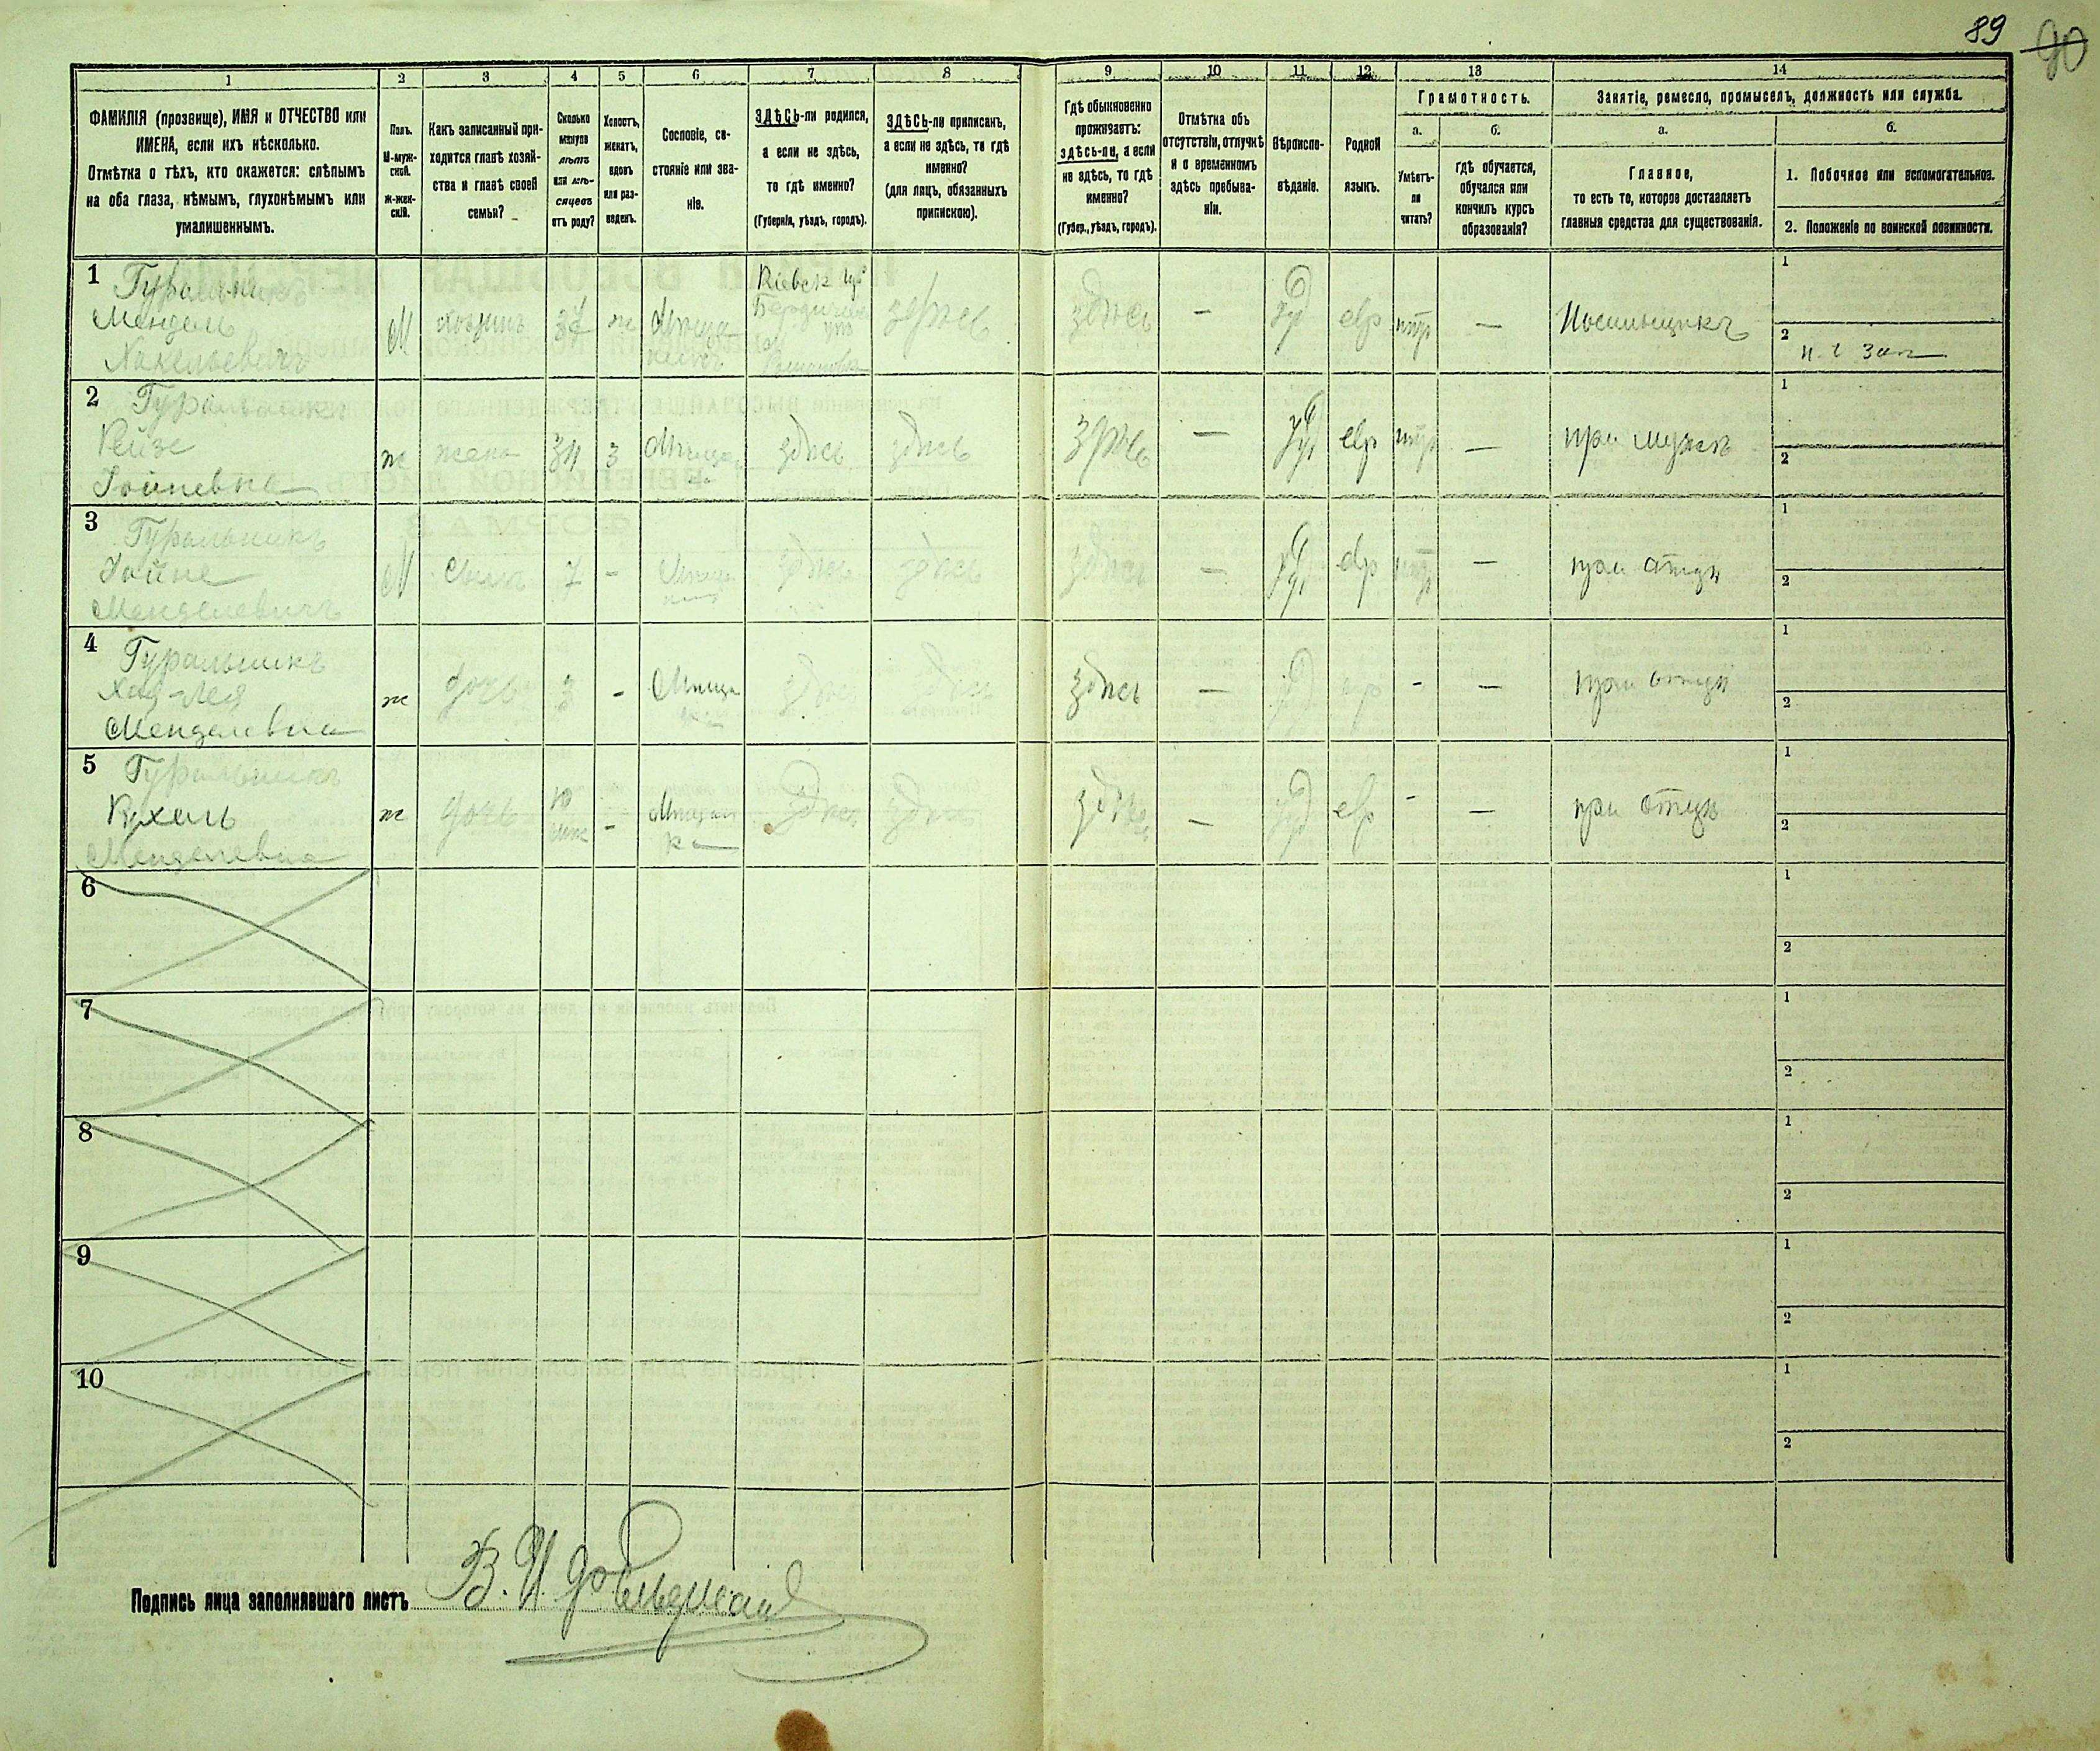 89
90
1 2 3 4 5 6 7 8 9 10 11 12 13 14
ФАМИЛІЯ (прозвище), ИМЯ и ОТЧЕСТВО или
ИМЕНА, если ихъ нѣсколько.
Отмѣтка о тѣхъ, кто окажется: слѣпымъ
на оба глаза, нѣмымъ, глухонѣмымъ или
умалишеннымъ.
Полъ.
М-муж-
ской.
Ж-жен-
скій.
Какъ записанный при-
ходится главѣ хозяй-
ства и главѣ своей
семьи?
Сколько
минуло
лѣтъ
или мѣ-
сяцевъ
отъ роду?
Холостъ,
женатъ,
вдовъ
или раз-
веденъ.
Сословіе, со-
стояніе или зва-
ніе.
ЗДѢСЬ-ли родился,
а если не здѣсь,
то гдѣ именно?
(Губернія, уѣздъ, городъ).
ЗДѢСЬ-ли приписанъ,
а если не здѣсь, то гдѣ
именно?
(для лицъ, обязанныхъ
припискою).
Гдѣ обыкновенно
проживаетъ:
здѣсь-ли, а если
не здѣсь, то гдѣ
именно?
(Губер., уѣздъ, городъ).
Отмѣтка объ
отсутствіи, отлучкѣ
и о временномъ
здѣсь пребыва-
ніи.
Вѣроиспо-
вѣданіе.
Родной
языкъ.
Грамотность.
а.
Умѣетъ-
ли
читать?
б.
гдѣ обучается,
обучался или
кончилъ курсъ
образованія?
Занятіе, ремесло, промыселъ, должность или служба.
а.
Главное,
то есть то, которое доставляетъ
главныя средства для существованія.
б.
1. Побочное или вспомогательное.
2. Положеніе по воинской повинности.
1
Гуральникъ
Мендель
М хозяинъ 37 ж Мѣща
Кіевск
здѣсь здѣсь — Іуд евр — Носильщикъ
1
2
2
Гуральникъ
Рейзе
Іойневна
ж жена 34 З Мѣща здѣсь здѣсь здѣсь — Іуд евр — при мужѣ
1
2
3
Гуральникъ
Іойне
Менделевичъ
М сынъ 7 - здѣсь здѣсь здѣсь — Іуд евр — при отцѣ
1
2
4
Гуральникъ
Хая-Лея
Менделевна
ж дочь 3 - Мѣща здѣсь здѣсь здѣсь — Іуд евр - — при отцѣ
1
2
5
Гуральникъ
Рухель
Менделевна
ж дочь 10 - Мѣщан
ка
здѣсь здѣсь здѣсь — Іуд евр - — при отцѣ
1
2
6
1
2
7
1
2
8
1
2
9
1
2
10
1
2
Подпись лица заполнявшаго листъ